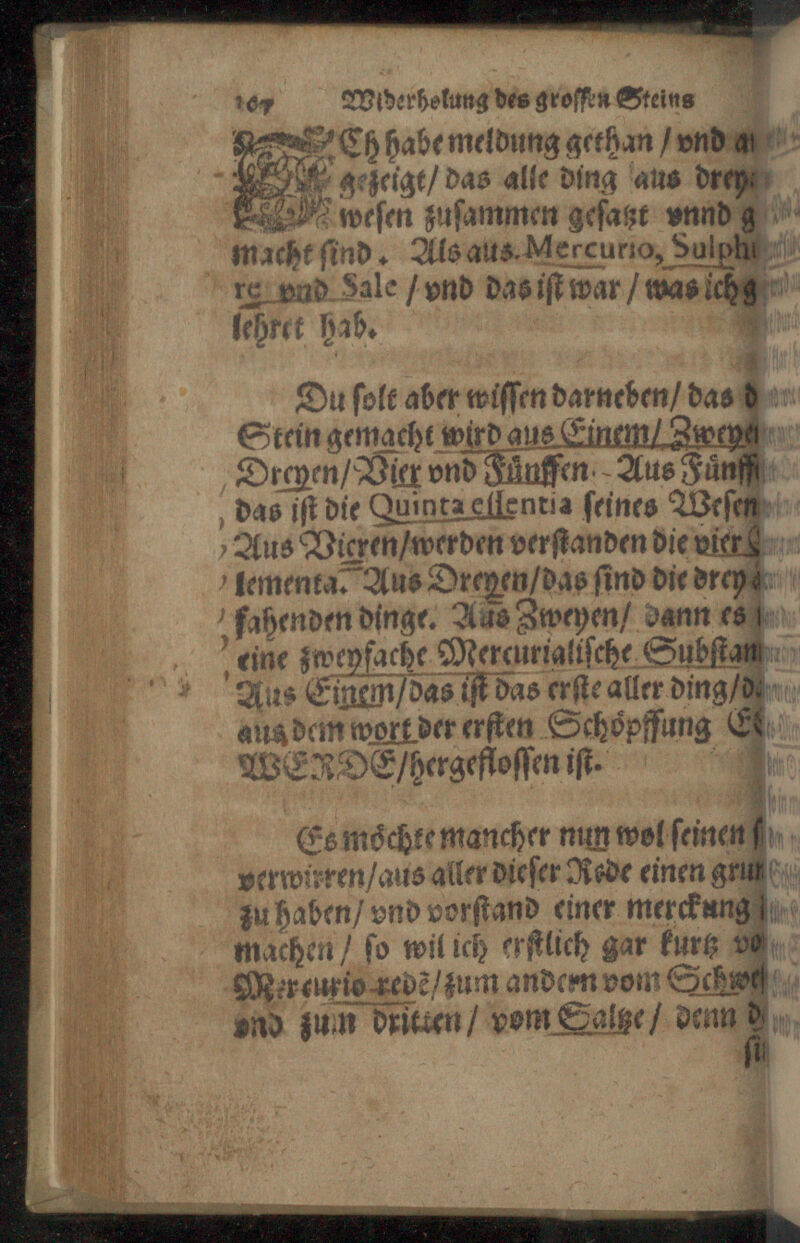 Widerholung des groſſen Steins
Ch habe meldung gethan / vnd
gezeigt/ das alle ding aus
weſen zuſammen geſatzt vnnd
macht ſind. Als aus Mercurio, Sulphu
re vnd Sale / vnd das iſt war / was ich
lehret hab.
Du ſolt aber wiſſen darneben/ das
Stein gemacht wird aus Einem/ Zweyē
Dreyen/ Vier vnd Fuͤnffen. Aus Fuͤnff
das iſt die Quinta eſſentia ſeines Weſen
Aus Vieren/werden verſtanden die vier
lementa. Aus Dreyen/das ſind die drey
fahenden dinge. Aus Zweyen/ dann es
eine zweyfache Mercurialiſche Subſtan
Aus Einem/das iſt das erſte aller ding/
aus dem wort der erſten Schoͤpffung
WERDE/hergefloſſen iſt.
Es moͤchte mancher nun wol ſeinen
verwirren/aus aller dieſer Rede einen
zu haben/ vnd vorſtand einer merckung
machen / ſo wil ich erſtlich gar kurtz
Mercurio redē/zum andern vom
vnd zum dritten / vom Saltze / denn